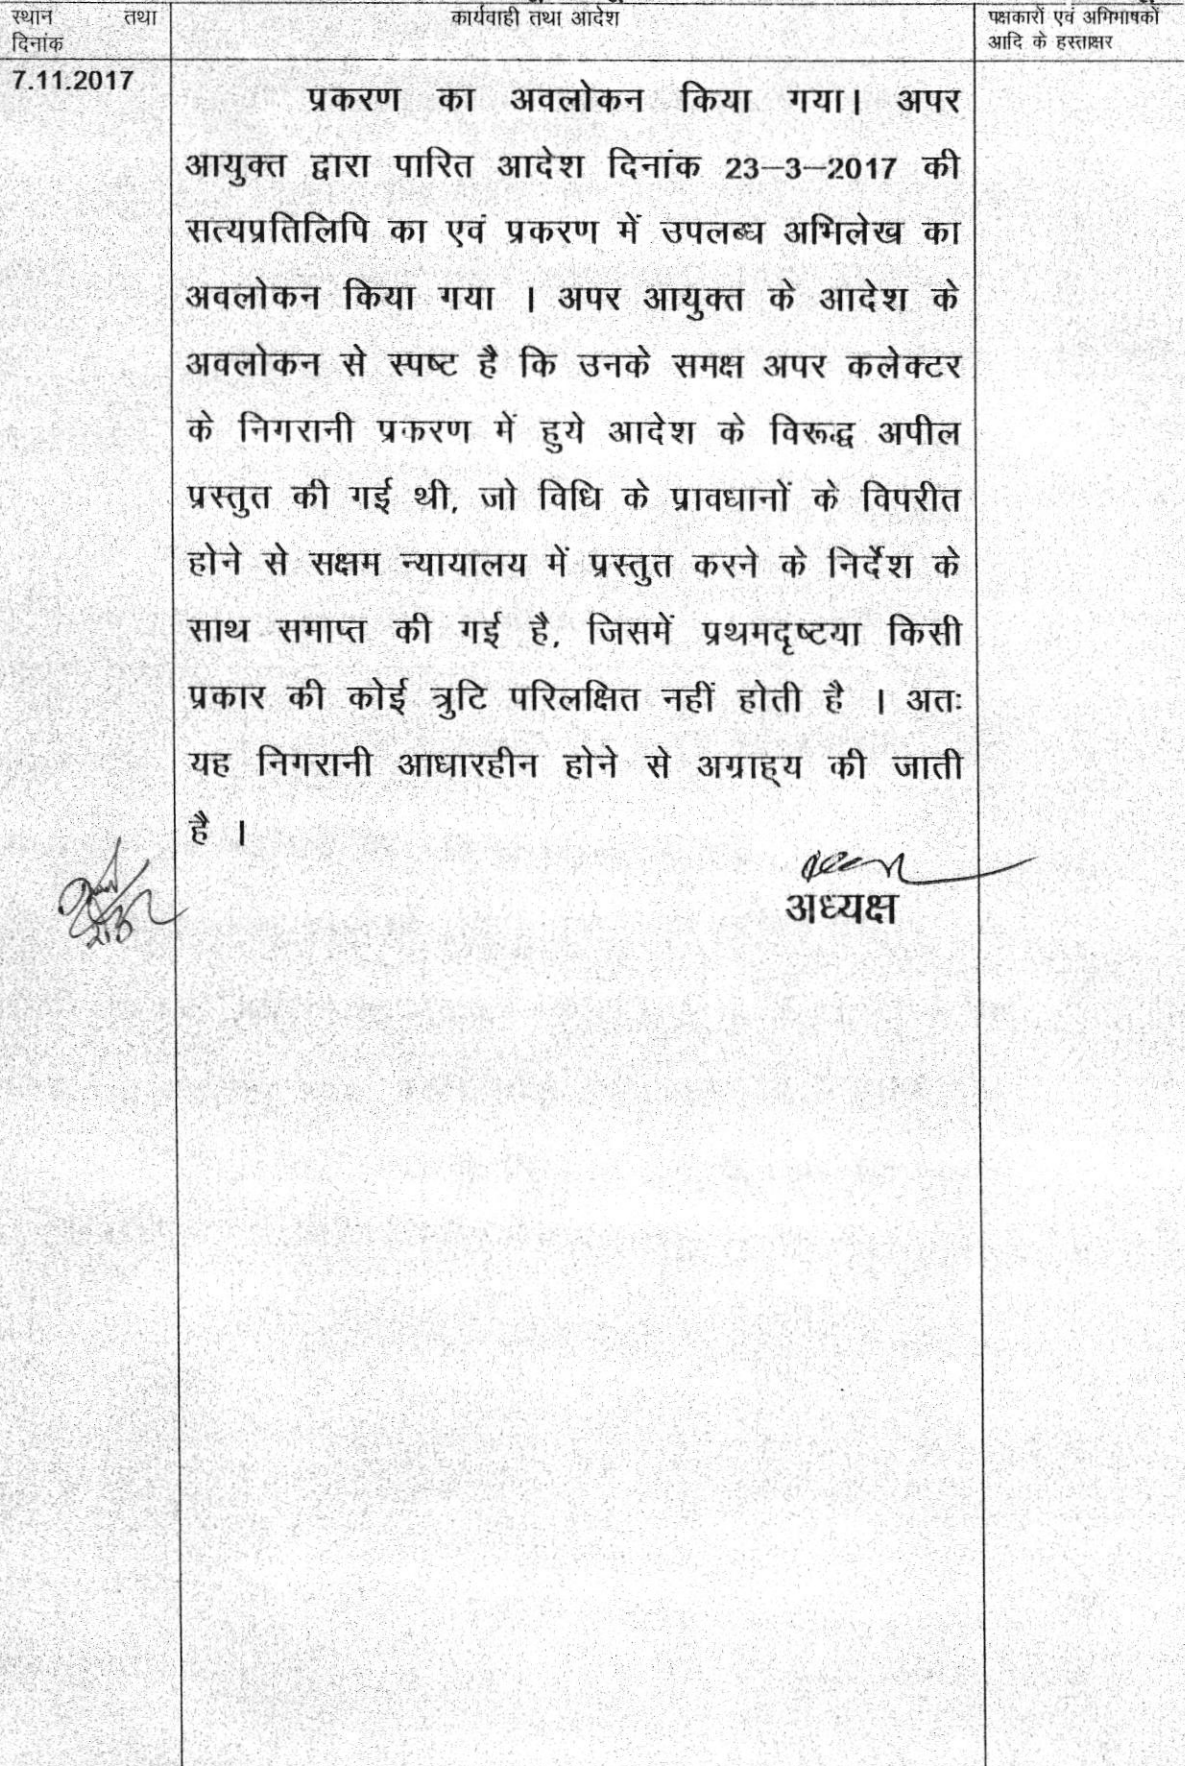 स्थान तथा
दिनांक
कार्यवाही तथा आदेश
पक्षकारों एवं अभिभाषकों
आदि के हस्ताक्षर
7.11.2017
प्रकरण का अवलोकन किया गया। अपर
आयुक्त द्वारा पारित आदेश दिनांक 23–3–2017 की
सत्यप्रतिलिपि का एवं प्रकरण में उपलब्ध अभिलेख का
अवलोकन किया गया । अपर आयुक्त के आदेश के
अवलोकन से स्पष्ट है कि उनके समक्ष अपर कलेक्टर
के निगरानी प्रकरण में हुये आदेश के विरूद्ध अपील
प्रस्तुत की गई थी, जो विधि के प्रावधानों के विपरीत
होने से सक्षम न्यायालय में प्रस्तुत करने के निर्देश के
साथ समाप्त की गई है, जिसमें प्रथमदृष्टया किसी
प्रकार की कोई त्रुटि परिलक्षित नहीं होती है । अतः
यह निगरानी आधारहीन होने से अग्राह्य की जाती
है ।
अध्यक्ष